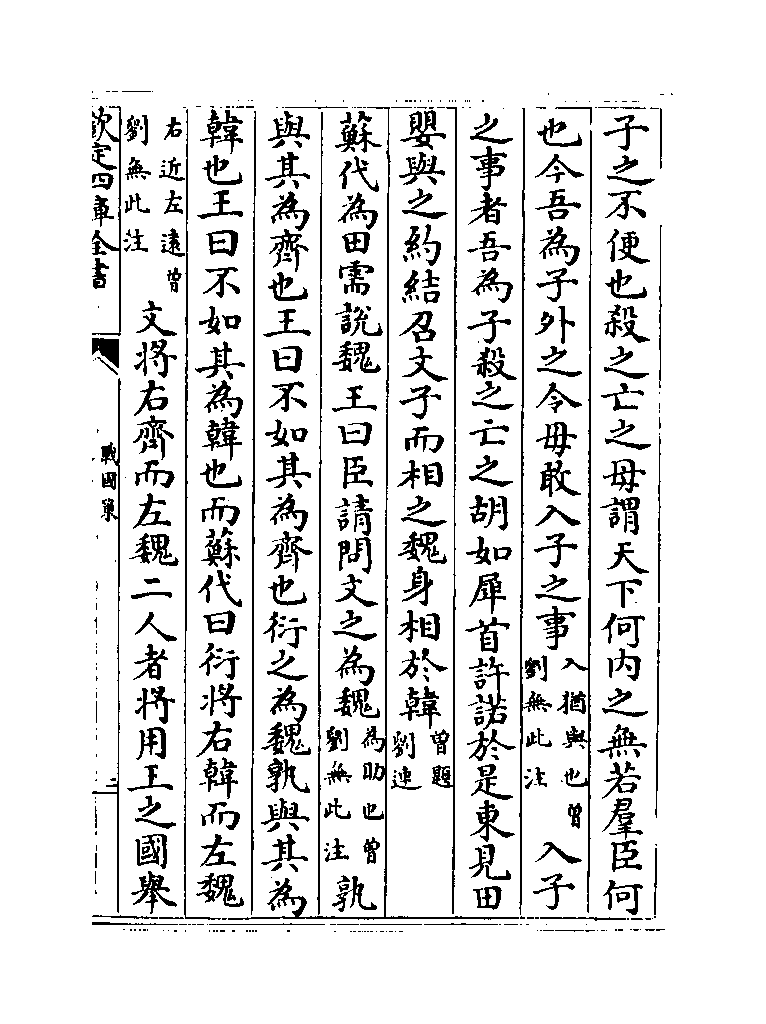 子之不便也殺之亡之毋謂天下何内之無若羣臣何
也今吾為子外之令毋敢入子之事入猶與也曾劉無此注入子
之事者吾為子殺之亡之胡如犀首許諾於是東見田
嬰與之約結召文子而相之魏身相於韓曾題劉連
蘇代為田需說魏王曰臣請問文之為魏為助也曾劉無此注孰
與其為齊也王曰不如其為齊也衍之為魏孰與其為
韓也王曰不如其為韓也而蘇代曰衍將右韓而左魏
右近左遠曾劉無此注文將右齊而左魏二人者將用王之國舉
欽定四庫全書
戰國策
二